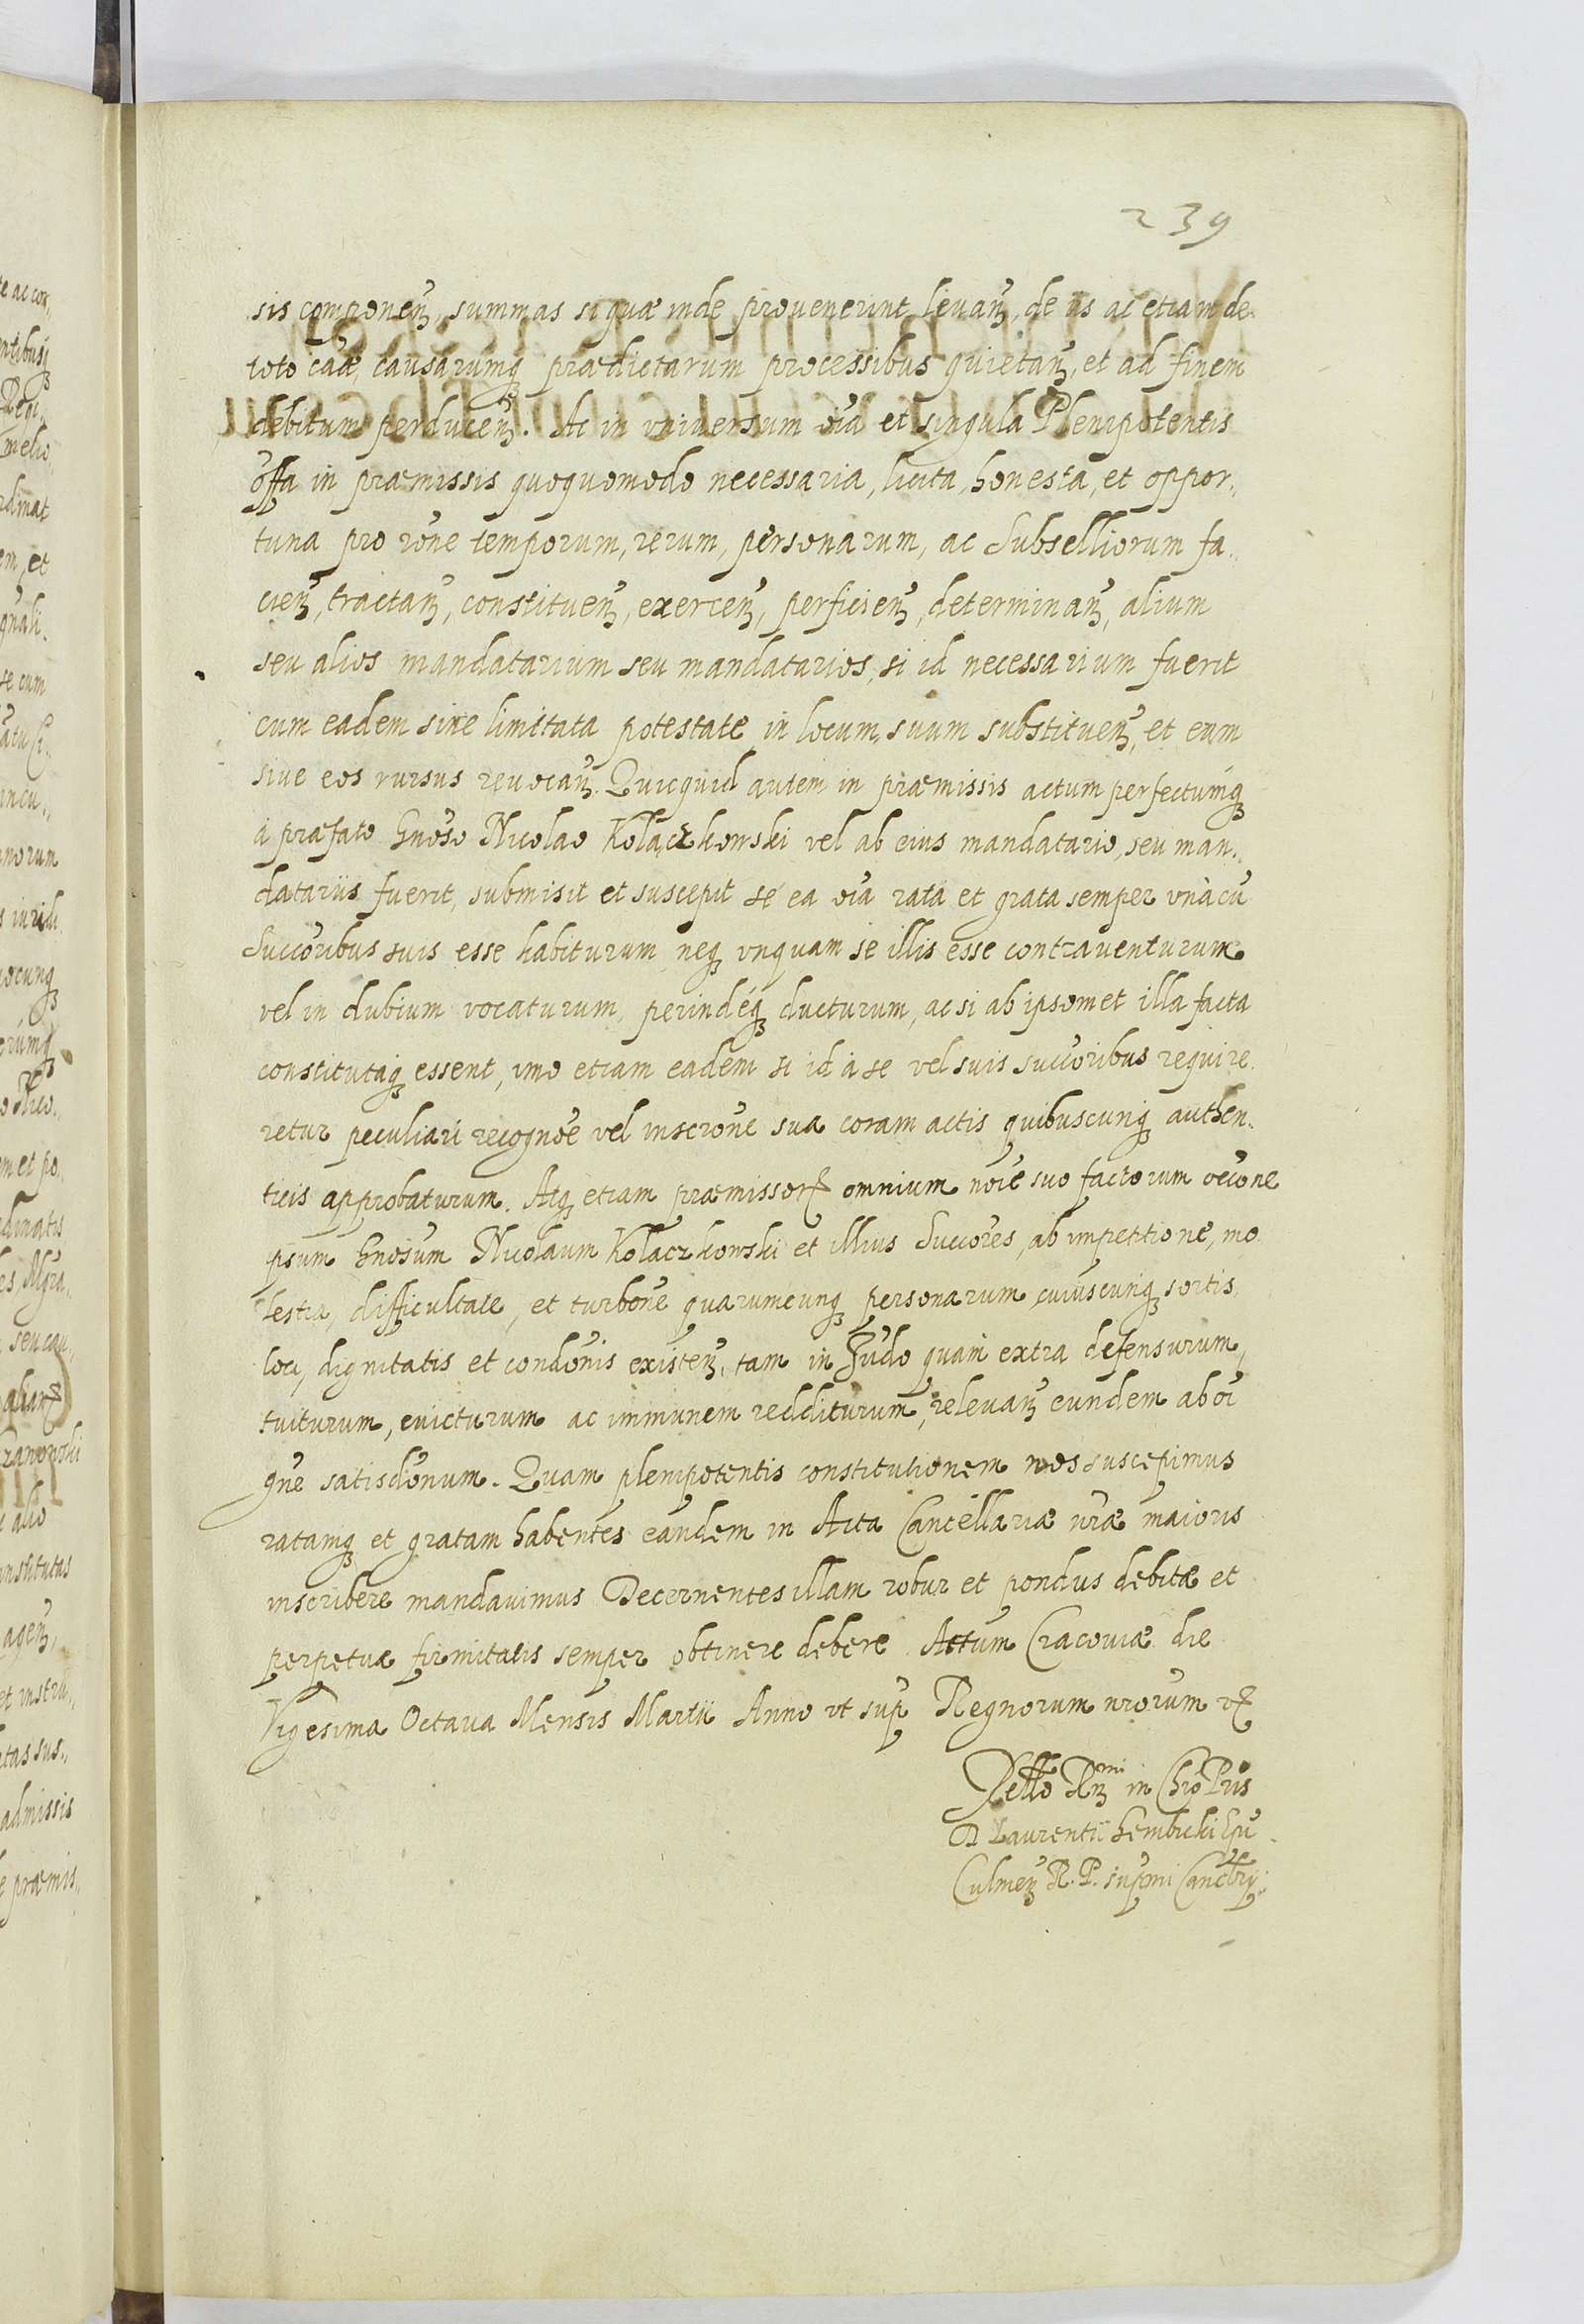 239
sis componen̄, summas si quæ inde provenerint levan̄, de iis ac etiam de
toto cāæ, causarumq̨ prædictarum processibus quietan̄, et ad finem
debitum perducen̄. Ac in vniversum oīa et singula Plenipotentis
offā in præmissis quoquomodo necessaria, licita, honesta, et oppor„
tuna pro rōne temporum, rerum, personarum, ac Subselliorum fa„
cien̄, tractan̄, constituen̄, exercen̄, perficien̄, determinan̄, alium
seu alios mandatarium seu mandatarios, si id necessarium fuerit
cum eadem sive limitata potestate in locum suum substituen̄, et eum
sive eos rursus revocan̄. Quicquid autem in præmissis actum perfectumq̨
à præfato Gnōso Nicolao Kołaczkowski vel ab eius mandatario, seu man„
datariis fuerit, submisit et suscepit se ea oīa rata et grata semper vnàcū
Succōribus suis esse habiturum neq̨ vnquam se illis esse contraventurum
vel in dubium vocaturum, perindéq̨ ducturum, ac si ab ipsomet illa facta
constitutaq̨ essent, imo etiam eadem si id à se vel suis succōribus require„
retur peculiari recognōe vel inscrōne sua coram actis quibuscunq̨ authen„
ticis approbaturum. Atq̨ etiam præmissorꝝ omnium nōīe suo factorum occōne
ipsum Gnōsum Nicolaum Kołaczkowski et illius Succōres, ab impetitione, mo
lestia, difficultate, et turbōne quarumcunq̨ personarum cuiuscunq̨ sortis,
loci, dignitatis et condōnis existen̄, tam in Iūdo quàm extra defensurum,
tuiturum, evicturum ac immunem redditurum, relevan̄ eundem ab oī
gn̄e satisdōnum. Quam plenipotentis constitutionem nos suscepimus
ratamq̨ et gratam habentes eandem in Acta Cancellariæ nr̄æ maioris
inscribere mandavimus Decernentes illam robur et pondus debitæ et
perpetuæ firmitatis semper obtinere debere. Actum Cracoviæ die
Vigesima Octava Mensis Martii Anno vt sup Regnorum nrōrum vꝝ
Rellō Rn̄mi in Chrō Pris
D Laurentii Gembicki Epī
Culmen̄ R. P. supmi Cancrij